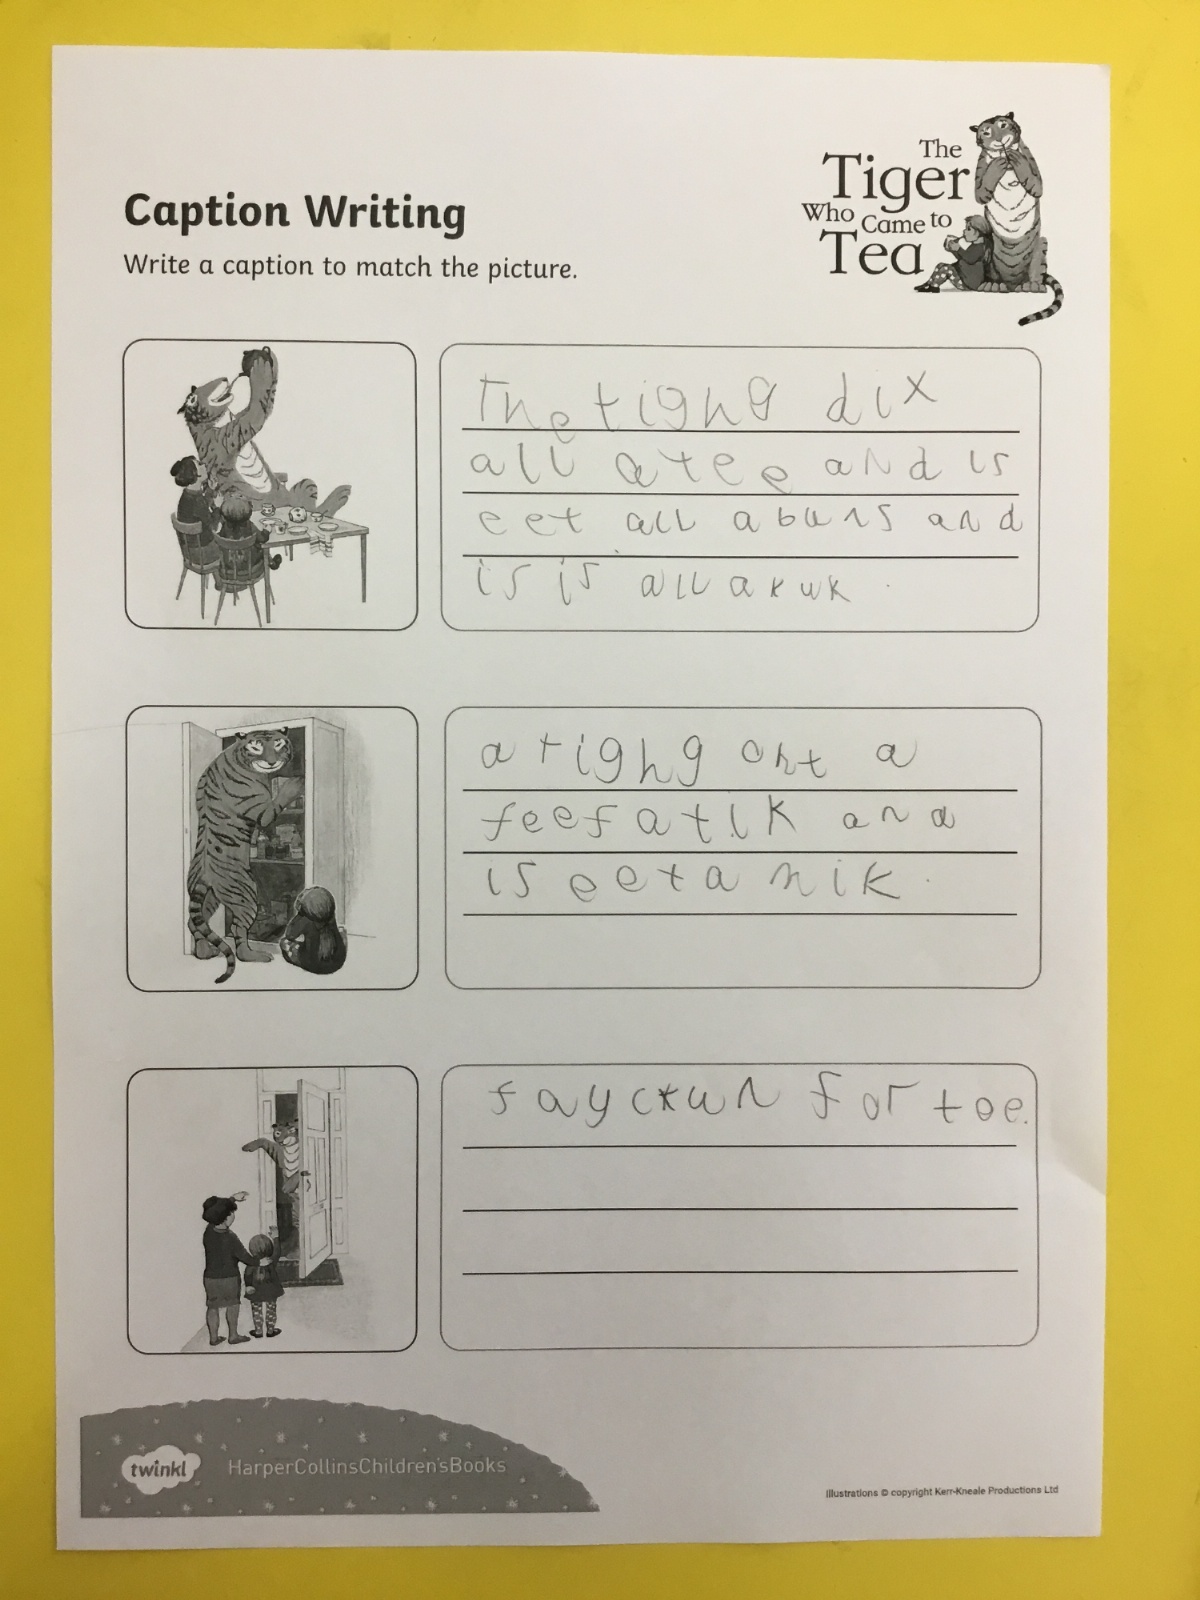 The
Tiger
Who Came to
Tea
Caption Writing
Write a caption to match the picture.
The tighg dix
all a tee and is
eet all a buns and
is is all a kuk.
a tighg ont a
feef a tik and
is eet a nik.
fayckun for toe.
twinkl HarperCollinsChildren'sBooks
Illustrations © copyright Kerr-Kneale Productions Ltd